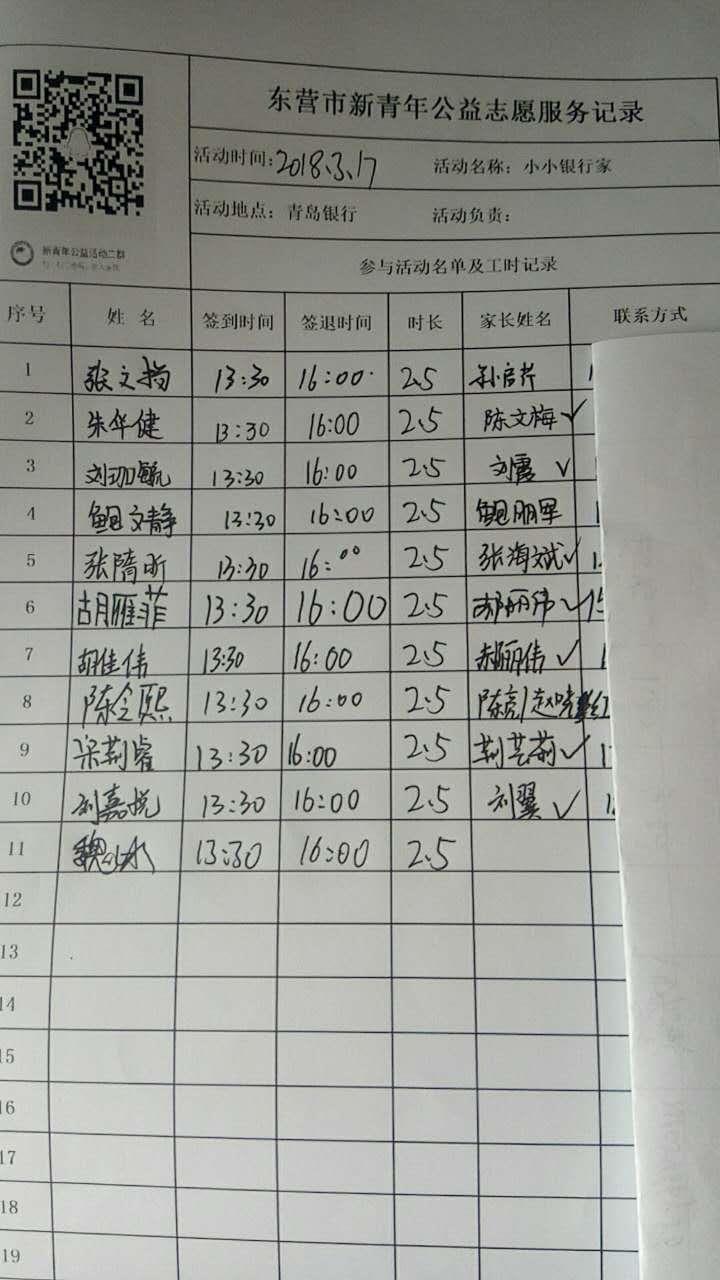 东营市新青年公益志愿服务记录
活动时间:2018.3.17 活动名称：小小银行家
活动地点：青岛银行 活动负责：
新青年公益活动二群
参与活动名单及工时记录
序号 姓名 签到时间 签退时间 时长 家长姓名 联系方式
1 张文 13:30 16:00 2.5
2 朱华健 13:30 16:00 2.5 陈文梅 ✓
3 刘珈毓 13:30 16:00 2.5 刘霞 ✓
4 鲍文静 13:30 16:00 2.5 鲍丽军
5 张隋昕 13:30 16:00 2.5 张海斌 ✓
6 胡雁菲 13:30 16:00 2.5 郝丽伟 ✓
7 胡佳伟 13:30 16:00 2.5 郝丽伟 ✓
8 陈令熙 13:30 16:00 2.5 陈 赵晓红
9 梁荆睿 13:30 16:00 2.5 荆艺莉 ✓
10 刘嘉悦 13:30 16:00 2.5 刘翼 ✓
11 魏 13:30 16:00 2.5
12
13
14
15
16
17
18
19